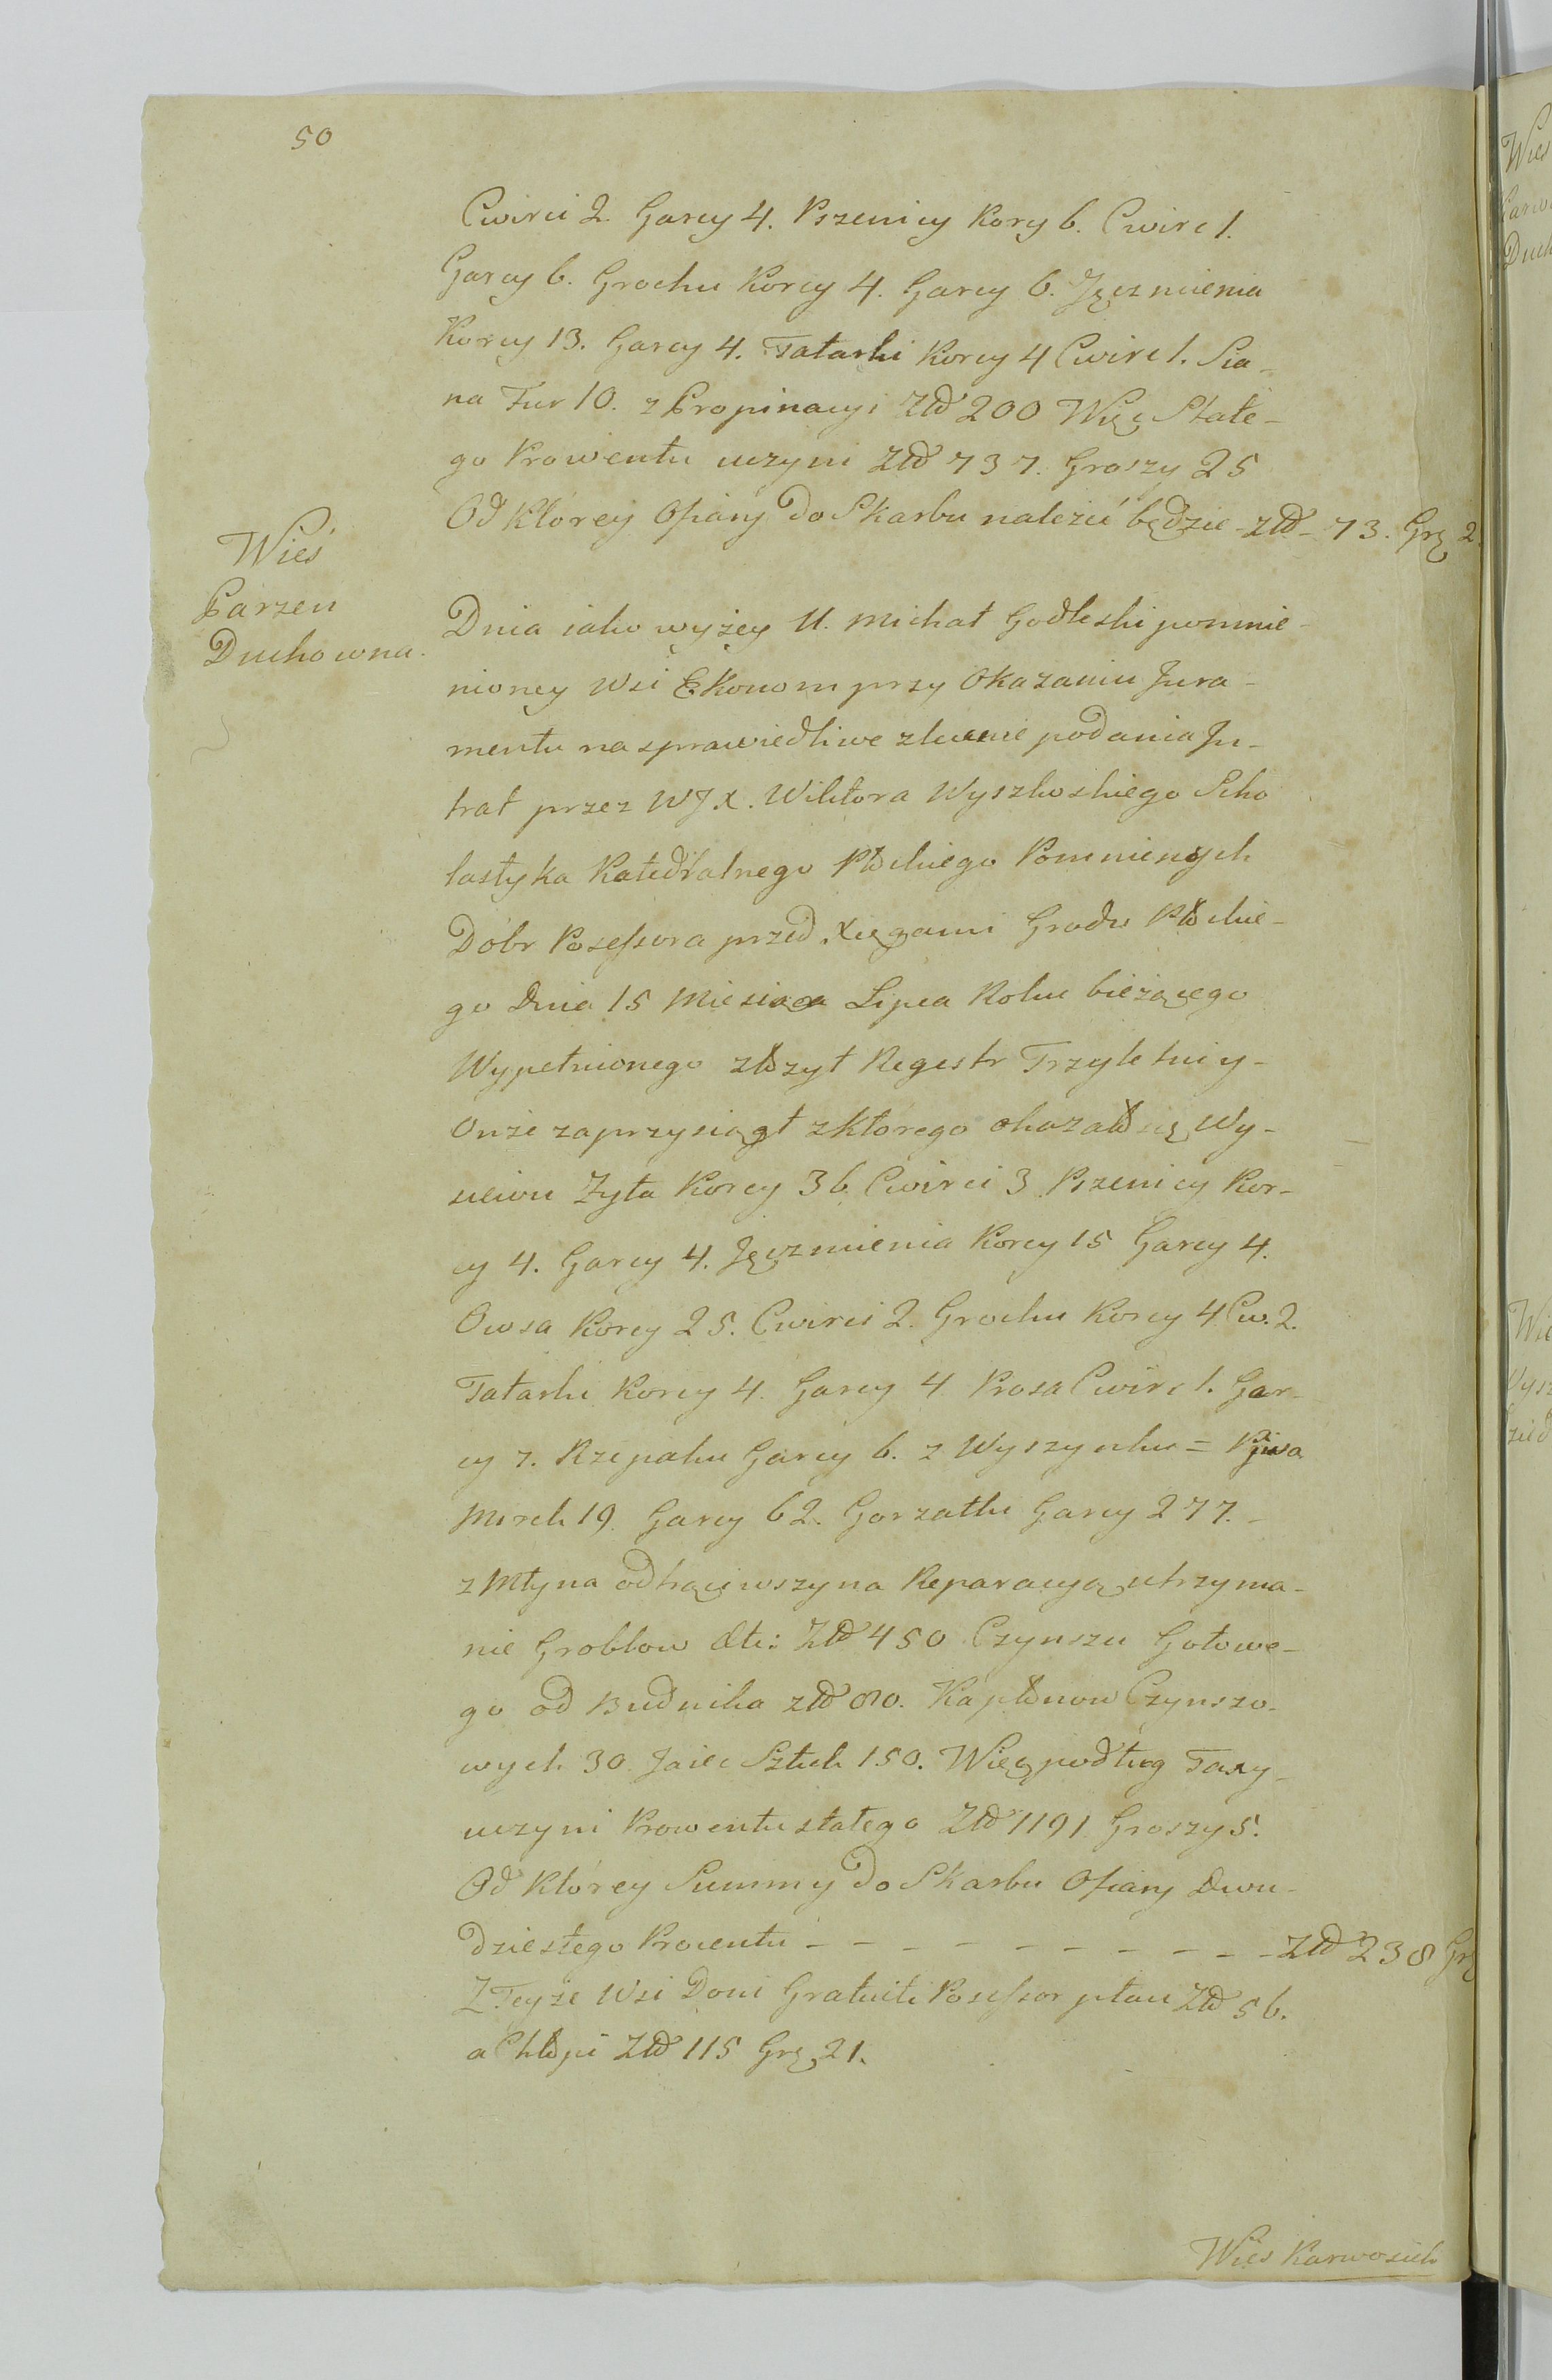 50
Cwirci 2. Garcy 4. Pszenicy Korcy 6. Cwirc 1.
Garcy 6. Grochu Korcy 4. Garcy 6. Jęczmienia
Korcy 13. Garcy 4. Tatarki Korcy 4 Cwirc 1. Sia-
na Fur 10. z Propinacyi Złł 200 Więc Stałe-
go Prowentu uczyni Złł 737. Groszy 25
Od Ktorey Ofiary do Skarbu należeć będzie - złł - 73. Grz 2.
Wieś
Parzen
Duchowna.
Dnia iako wyżey U. Michał Godleski pomnie-
nioney Wsi Ekonom przy Okazaniu Jura-
mentu na sprawiedliwe zdanie podania In-
trat przez WJX. Wiktora Wyszkoskiego Scho
lastyka Katedralnego Płockiego Pomnienych
Dóbr Posessora przed Xięgami Grodu Płockie-
go Dnia 15 Miesiąca Lipca Roku bieżącego
Wypełnionego złożył Regestr Trzyletni y-
Onże zaprzysiągł z którego okazało się Wy-
siewu Żyta Korcy 36 Cwirci 3 Pszenicy Kor-
cy 4. Garcy 4. Jęczmienia Korcy 15 Garcy 4.
Owsa Korcy 25. Cwirci 2. Grochu Korcy 4 Cw. 2.
Tatarki Korcy 4. Garcy 4 Prosa Cwirc 1. Gar-
cy 7. Rzepaku Garcy 6. z Wyszynku = Piwa
Mirek 19. Garcy 62. Gorzałki Garcy 277. -
z Młyna odtrąciwszy na Reparacyą utrzyma-
nie Groblow &tc: Złł 450 Czynszu Gotowe-
go od Budnika złł 80. Kapłonow Czynszo-
wych 30 Jaiec Sztuk 150. Więc podług Taxy-
uczyni Prowentu stałego Złł 1191 Groszy 5.
Od Ktorey Summy do Skarbu Ofiary Dwu-
dziestego Procentu - - - - - - - - - - Złł 238 Grz
Z Teyże Wsi Doni Gratuiti Posessor płaci Złł 56.
a Chłopi Złł 115 Grz 21.
Wies Karwosiek